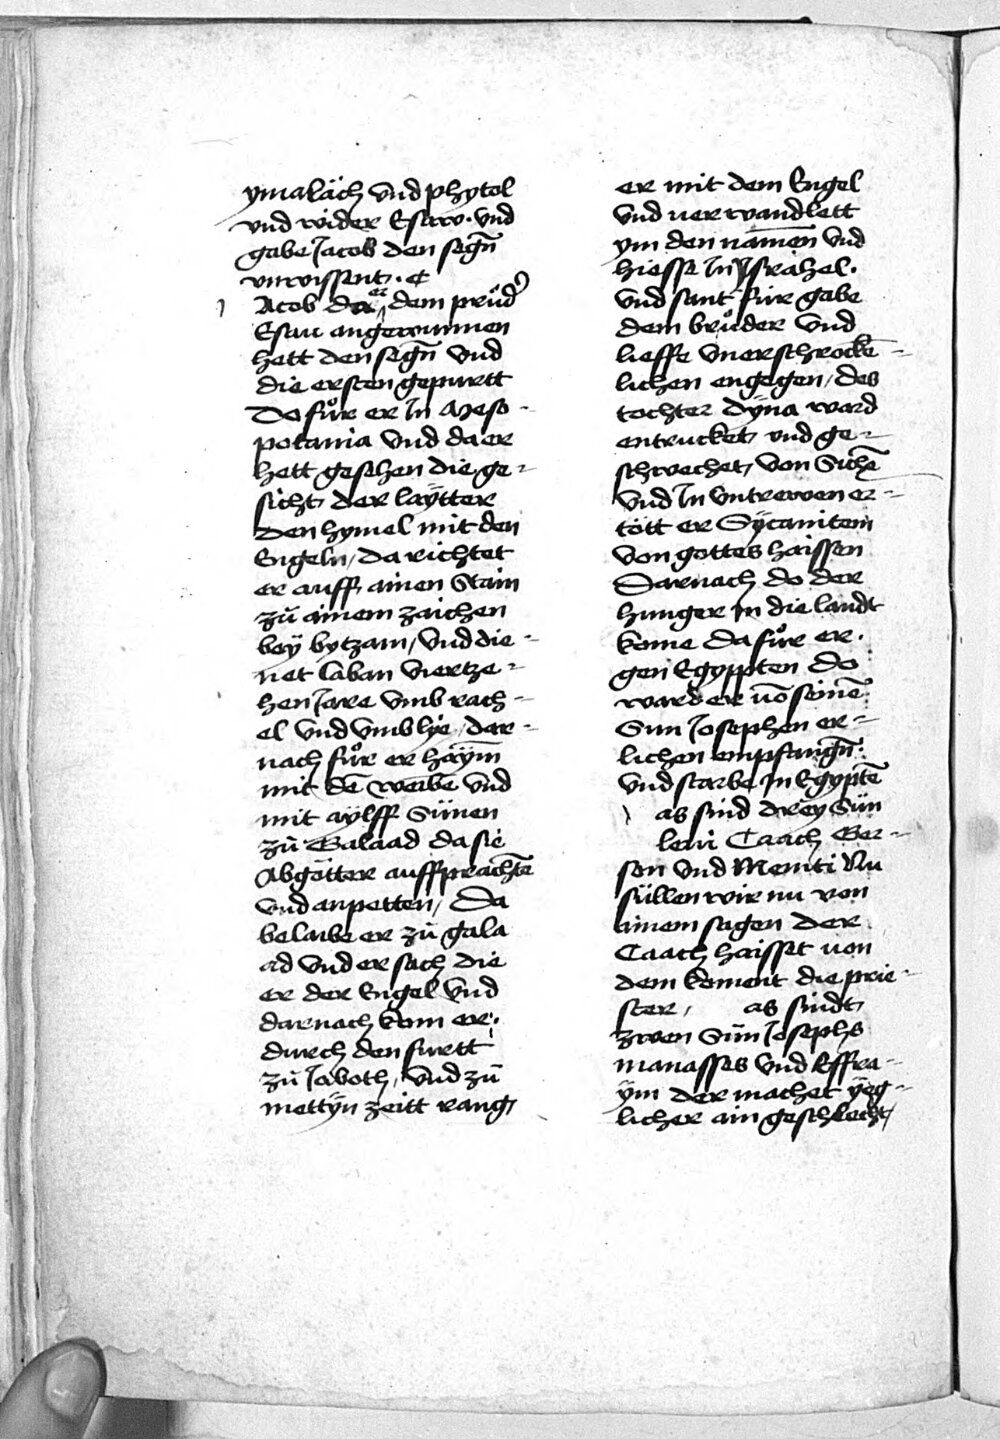 ymaläch vnd phytol
vnd wider Esaw · vnd
gabe Jacob den segn̄
vnwissent · ¢
Acob da er dem průd᷑
Esau angewunnen
hett den segn̄ vnd
die ersten gepurtt
Do fůr er In Meso-
potania vnd da er
hett gesehen die ge-
sicht, der laÿtter
den hymel mit den
Engeln, da richtet
er auff ainen Stain
zů ainem zaichen
beÿ bytzam, vnd die-
net laban viertze-
hen Jare vmb rach-
el vnd vmb lye, dar-
nach fůr er haÿm̄
mit dē weiben vnd
mit aÿlff Sünen
zů Galaad da sie
Abgötter auffprachtē
vnd anpetten, Da
belaibe er zů gala
ad vnd er sach die
er der Engel vnd
darnach kom er
durch den furtt
zů Jaboth, vnd zů
mettÿn zeitt rang,
er mit dem Engel
vnd uerwandlett
ym den namen vnd
hiesse In Jsrahel.
vnd sant für gabe
dem brůder vnd
lieffe vnerschrockē-
lichen engegen, des
tochter dÿna ward
entrucket, vnd ge-
schwechet, von Sichē
vnd In vntrewen er-
tött er Sÿcanitem
von gottes haissen
Darnach do der
hunger In die landt
kome da fůr er.
gen Egyppten do
ward er uō seinē
Sun Josephen er-
lichen empfangn̄:
vnd starbe In Egyptē
as sind dreÿ Sün
leui Caach Ger-
son vnd Meniti Nu
süllen wir nu von
ainem sagen der
Caach haisset uon
dem koment die prie-
ster, as sindt,
zwen Sün Josephs
manasses vnd Effra-
ÿm der machet ÿeg-
licher ain geschlecht,